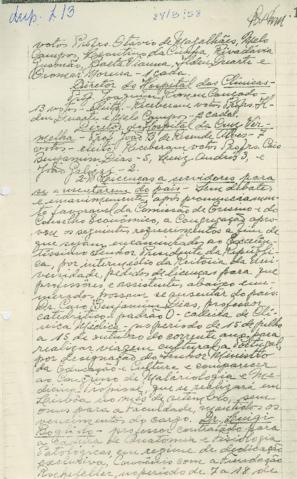 dup. 213
28/3/58
votos Profrs. Otavio de Magalhães, Melo
Campos, da Cunha, Rivadávia
Baeta Vianna, Duarte e
Oromar Moreira - 1 cada.
Diretor do Hospital das Clínicas -
Prof. Cançado -
13 votos - eleito. Receberam votos Profrs.
Duarte e Melo Campos - 1 cada.
Diretor do Hospital da Cruz Ver-
melha - Prof. João de Resende Alves - 7
votos - eleito. Receberam votos Profrs. Caio
Benjamim Dias - 5, Luiz Andrés 3, e
João Galizzi - 2.
Licenças a servidores para
se ausentarem do país - Sem debates
e unanimemente, após pronunciamento
favorável da Comissão de Ensino e do
Conselho Econômico, a Congregação apro-
vou os seguintes requerimentos a fim de
que sejam encaminhados ao Excelen-
tíssimo Senhor Presidente da República,
por intermédio da Reitoria da Uni-
versidade, pedidos de licença para que
professores e assistentes, abaixo enu-
merados, possam se ausentar do país:
Dr. Caio Benjamim Dias, professor
catedrático padrão O - cadeira de Clí-
nica Médica - no período de 15 de julho
a 15 de outubro do corrente ano, para
realizar viagem cultural a Portugal
por designação do Senhor Ministro
da Educação e Cultura e comparecer
ao Congresso de Malariologia e Me-
dicina Tropical que se realizará em
Lisboa no mês de setembro, sem
ônus para a Faculdade, mantidos os
vencimentos do cargo. Dr. Luigi
Bogliolo - professor contratado para
a Cadeira de Anatomia e Fisiologia
Patológicas, em regime de dedicação
exclusiva, Convênio com a Fundação
Rockefeller, no período de 7 a 18 de